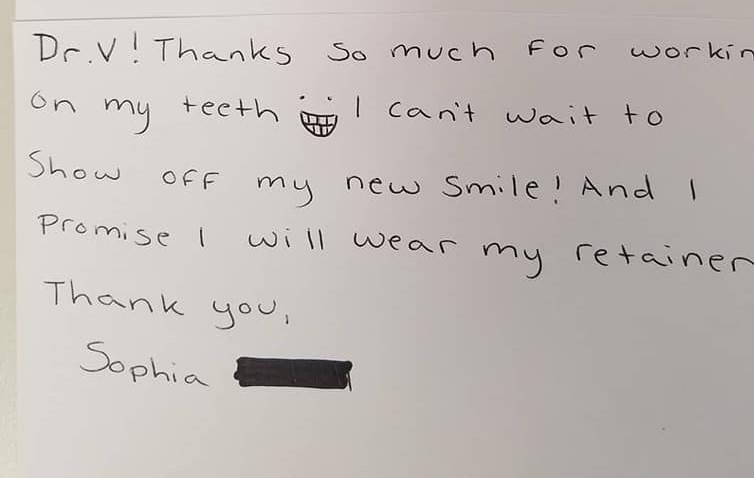 Dr.V! Thanks so much for workin
on my teeth I can't wait to
Show off my new smile! And I
Promise I will wear my retainer
Thank you,
Sophia